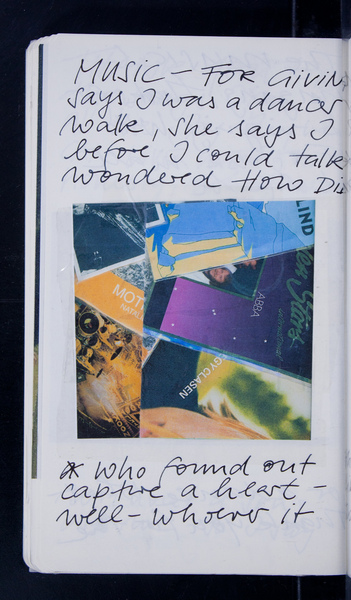 MUSIC – FOR GIVIN
says I was a dancer
walk, she says I
before I could talk
wondered How Di
LIND
MOT
ABBA
GY CLASEN
* who found out
capture a heart –
well – whoever it